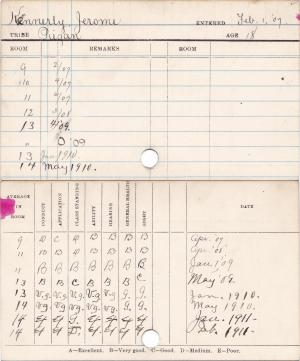 Kennerly, Jerome ENTERED Feb. 1, '07.
TRIBE Piegan AGE 18
ROOM REMARKS ROOM
9 2/07
10 9/07
11 9/07
12 3/08
13 4/'09.
" O '09
13 Jan 1910.
14 May 1910.
AVERAGE IN ROOM CONDUCT APPLICATION CLASS STANDING ABILITY HEARING GENERAL HEALTH SIGHT DATE
9 D C D B B B B Apr. '09
11 D B B B B B B
11 B B B B B B C Jan. '09
13 B B C B B B C May '09.
13 Vg. Vg. Vg. Vg. Vg. G. G. Jan. 1910.
14 Vg. G. G. G. Vg. G. G. May 1910.
14 Jan. 1911-
14 1911-
A—Excellent. B—Very good. C—Good. D—Medium. E—Poor.